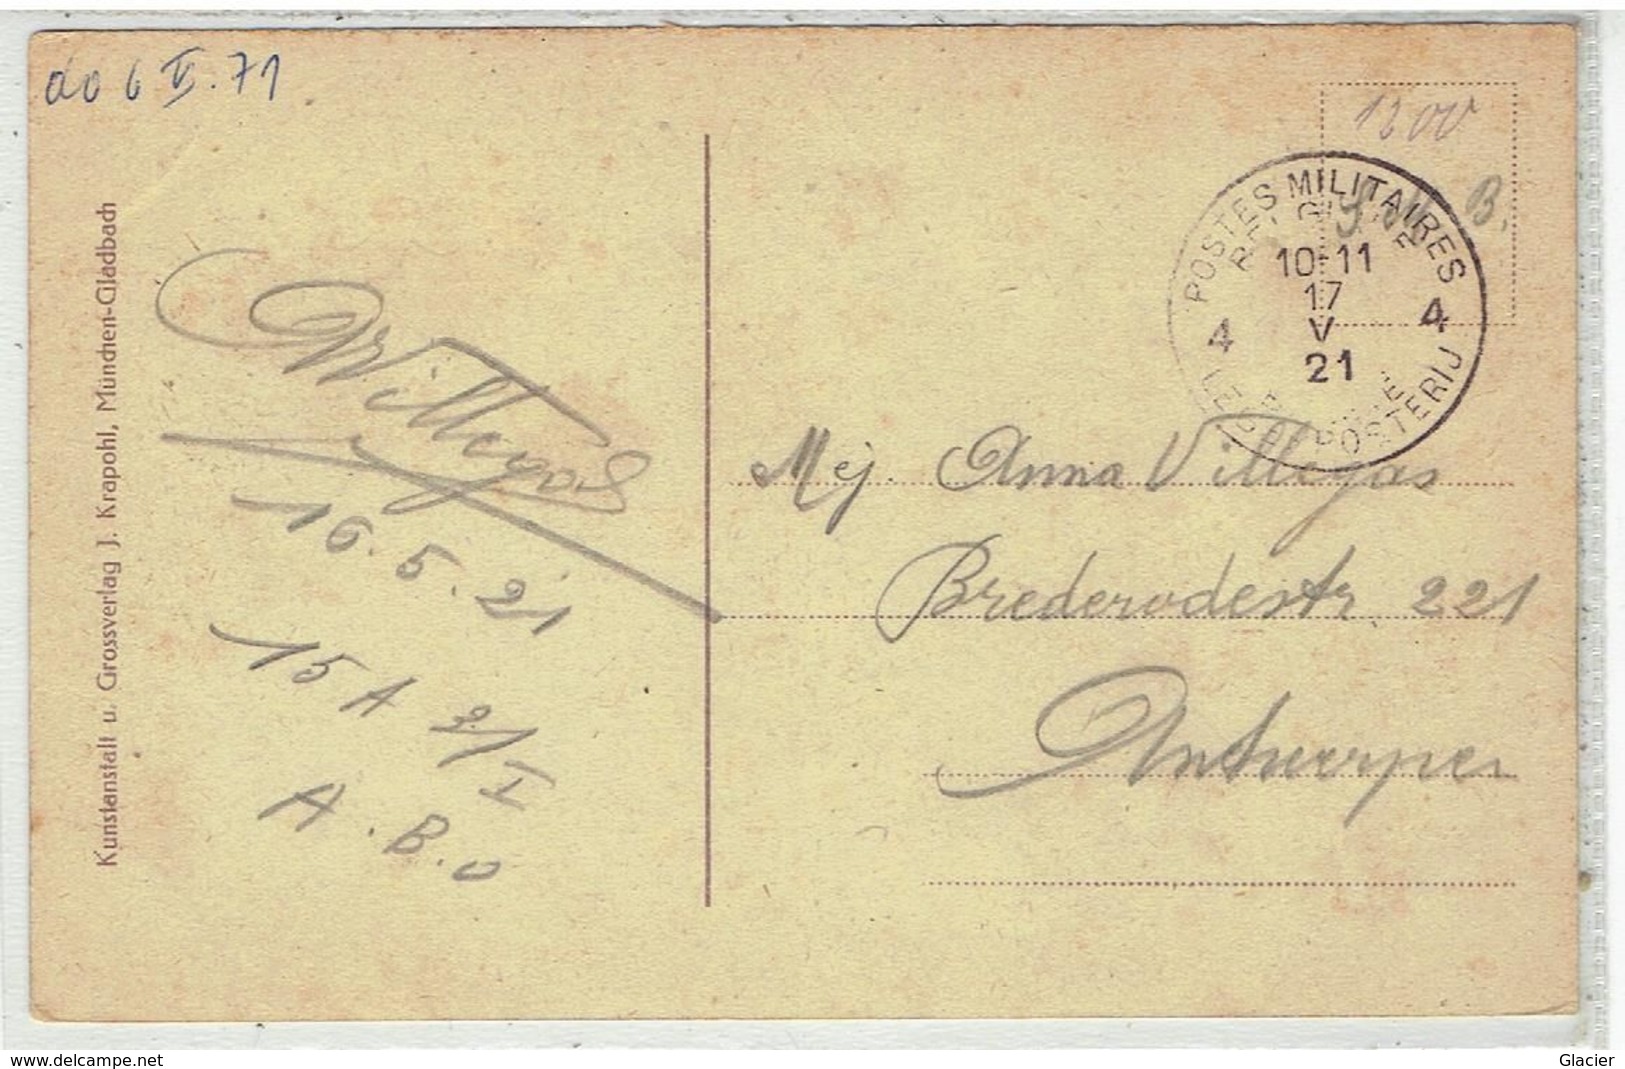 do 6 V. 71
1200
S.M. B.
POSTES MILITAIRES
BELGIQUE
10-11
17
V
21
4 4
BELGIË
POSTERIJ
Kunstanstalt u. Grossverlag J. Krapohl, München-Gladbach
Willegas
16.5.21
15 A 2/1
I
A.B.O
Mej. Anna Villegas
Brederodestr 221
Antwerpen
www.delcampe.net
Glacier